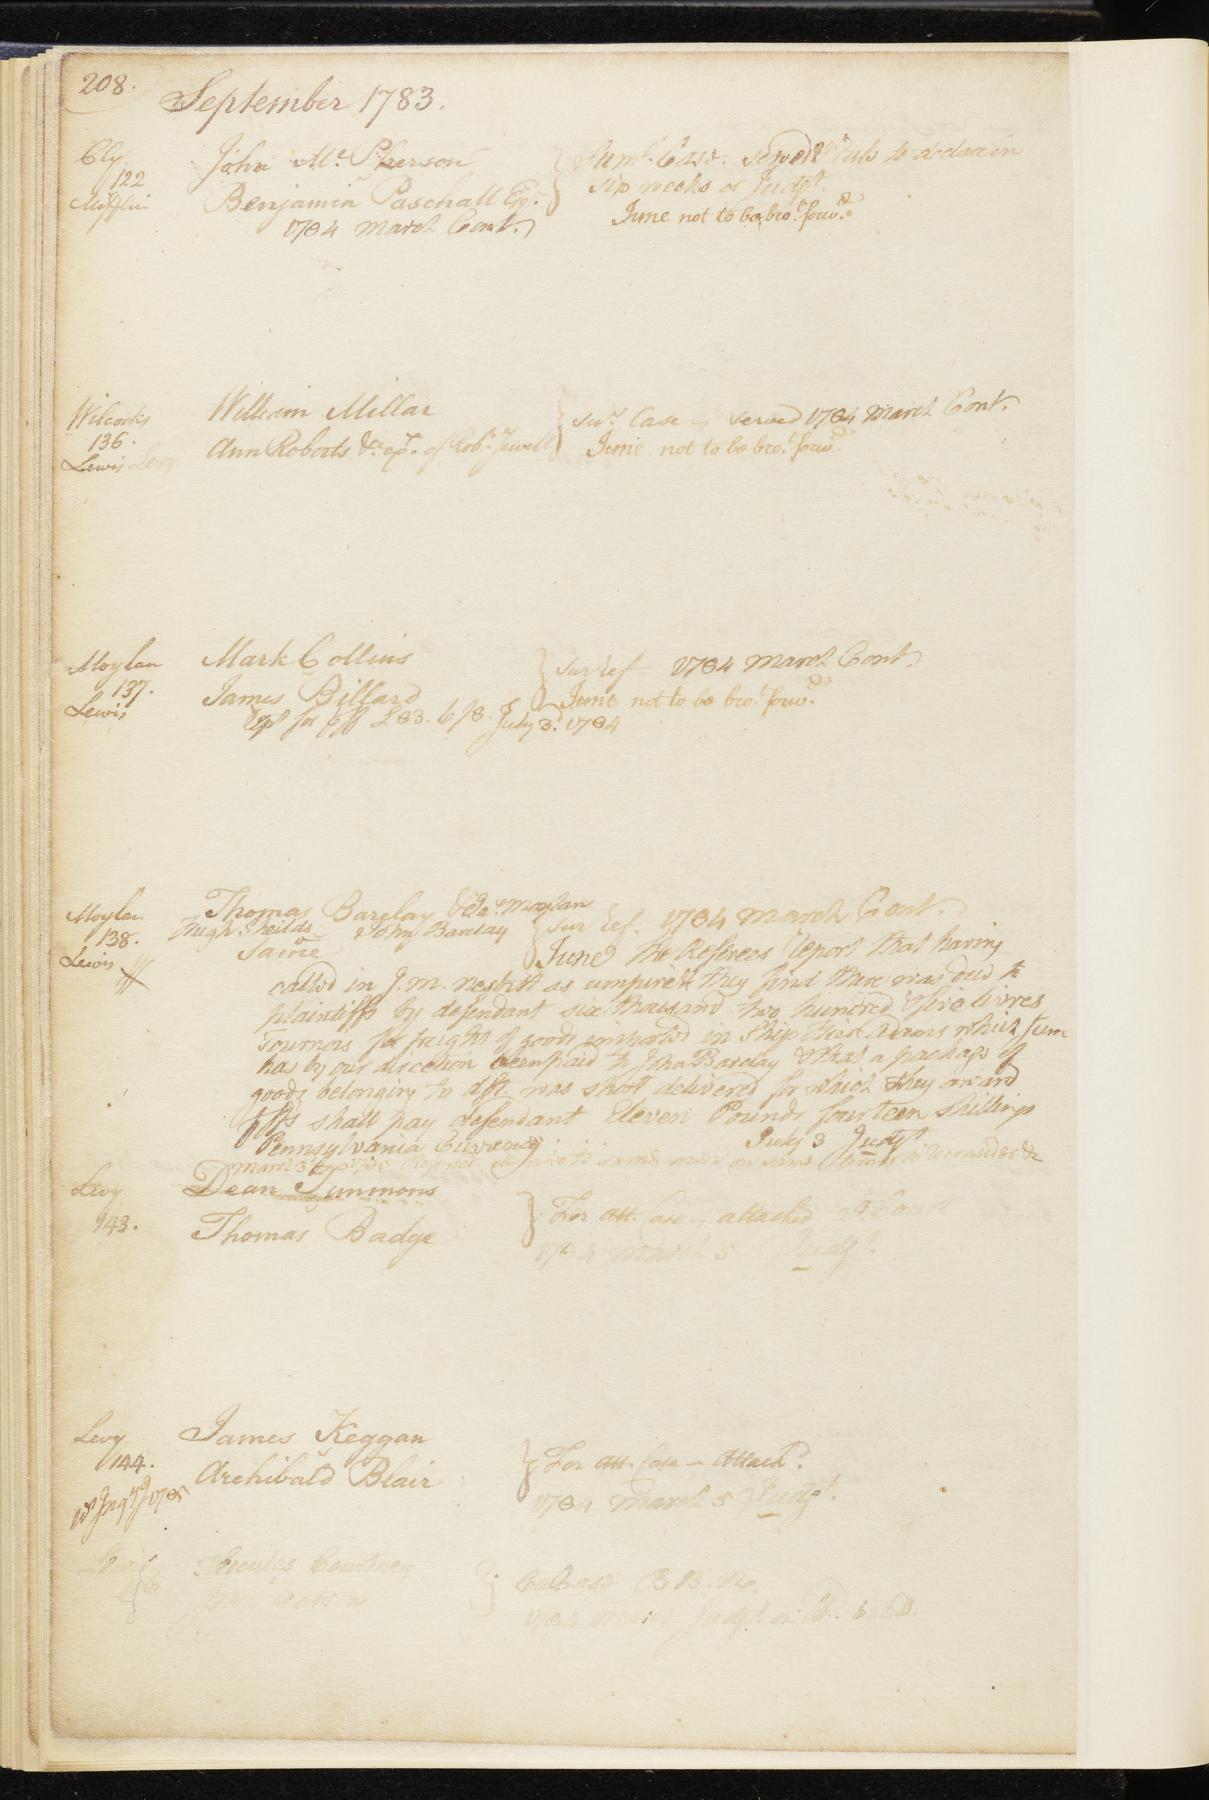 208.
September 1783.
Cly. John Mc.Pherson } Sum. Case. served & rule to declare in
122 six weeks or Judgt.
Mifflin Benjamin Paschall Esq. June not to be bro. forw.
1784 March Cont.
Wilcocks William Millar } Sur. Case served 1784 March Cont.
136. June not to be bro. forw.
Lewis Levy Ann Roberts &c. of Rob. Jewell
Moylan Mark Collins } Sur ref 1784 March Cont.
137. June not to be bro. forw.
Lewis James Billard
for plff £83. 6/8. July 3. 1784
Moylan Thomas Barclay & Ja. Moylan
138. Hugh Sheilds & John Barclay } Sur ref. 1784 March Cont.
Lewis Same June The Referees report that having
called in J. M. Nesbitt as umpire & they find there was due to
plaintiffs by defendant six thousand two hundred & five livres
Tournois for freight of goods imported in Ship which sum
has by our direction been paid to John Barclay & that a package of
goods belonging to dft. was short delivered for which they award
plffs shall pay defendant Eleven Pounds fourteen shillings
Pennsylvania Currency July 3 Judgt
March same men on same to reconsider &c
Levy Dean Timmons } For att. Case attached
143. Thomas Badge 1784 March 5 Judgt.
Levy James Keggan } For att. Case Attachd.
144. Archibald Blair 1784 March 5 Judgt.
1785
Lewis Hercules Courtney } Case B B.
1784 Judgt.